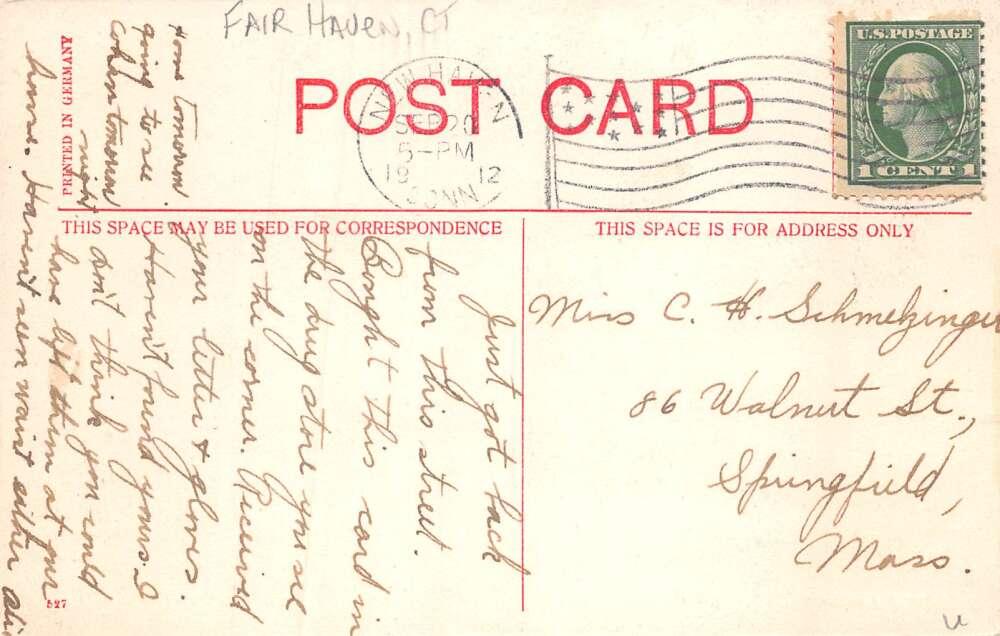 FAIR HAVEN, CT
POST CARD
NEW HAVEN
SEP 20
5-PM
19 12
CONN.
U.S. POSTAGE
1 CENT 1
PRINTED IN GERMANY
THIS SPACE MAY BE USED FOR CORRESPONDENCE
THIS SPACE IS FOR ADDRESS ONLY
Just got back
from this street.
Bought this card in
the drug store you see
on the corner. Received
your letter & gloves.
Haven't found yours. I
don't think you could
have left them at our
house. Haven't seen waist either
tomorrow.
going to see
tomorrow
night
Miss C. H. Schmelzinger
86 Walnut St.,
Springfield,
Mass.
527